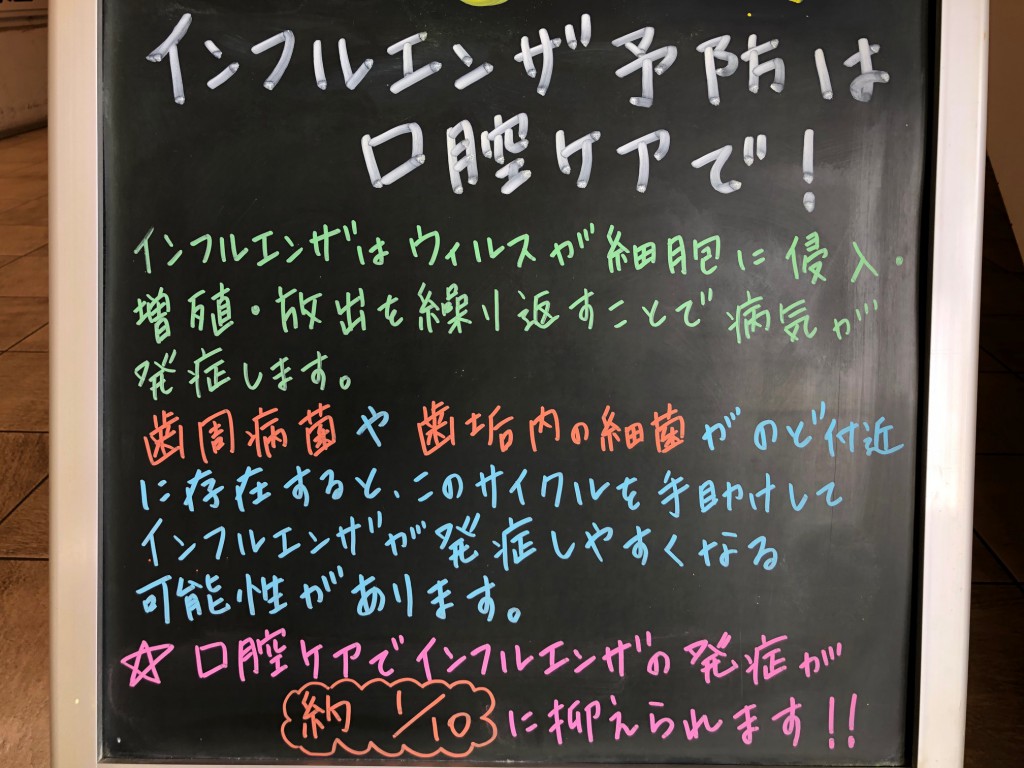 インフルエンザ予防は
口腔ケアで!
インフルエンザはウィルスが細胞に侵入・
増殖・放出を繰り返すことで病気が
発症します。
歯周病菌や歯垢内の細菌がのど付近
に存在すると、このサイクルを手助けして
インフルエンザが発症しやすくなる
可能性があります。
☆口腔ケアでインフルエンザの発症が
約1/10に抑えられます!!